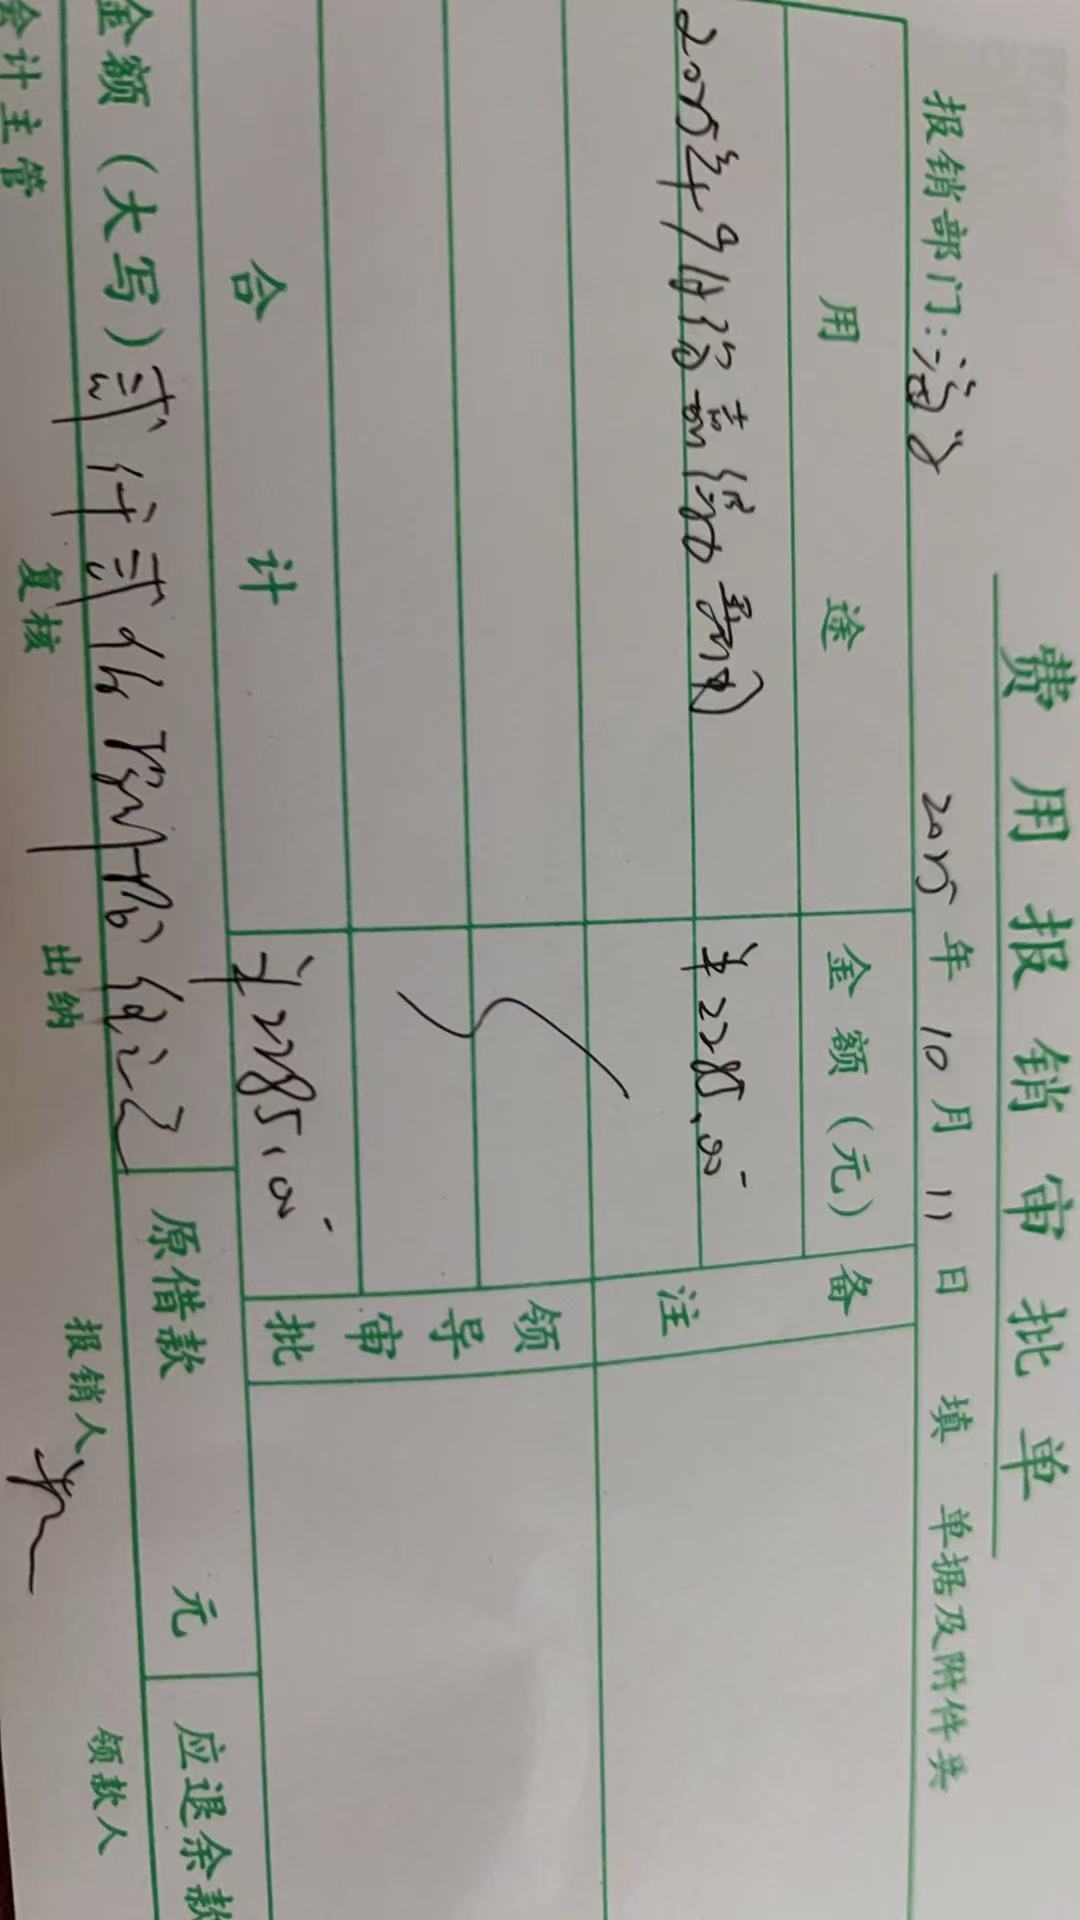 费用报销审批单
报销部门： 2025年10月11日填 单据及附件共
用途 金额（元） 备注
2025年9月份 费用 ¥2285.00
领导审批
合计 ¥2285.00
金额（大写）贰仟贰佰捌拾伍元 原借款 元 应退余款
会计主管 复核 出纳 报销人 领款人